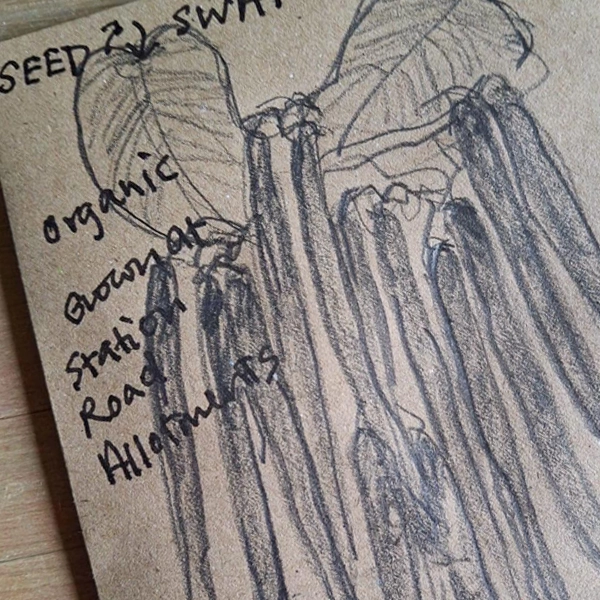 SEED SWAP
organic
Grown at
Station
Road
Allotments